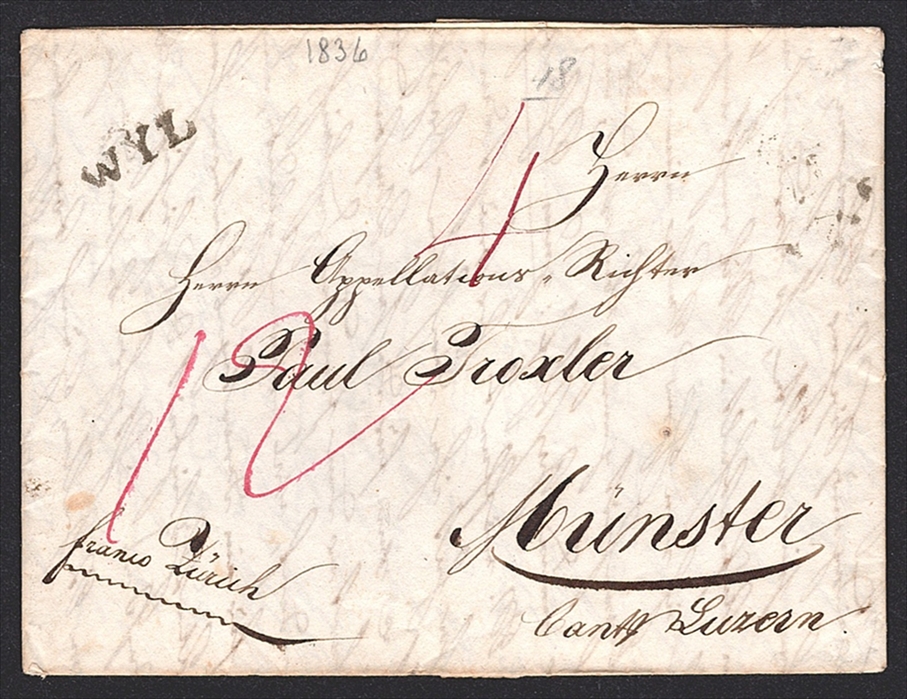 1836
18
WYL
Herrn
Herrn Appellations-Richter
Paul Troxler
12
Münster
franco Zürich
Cant Luzern